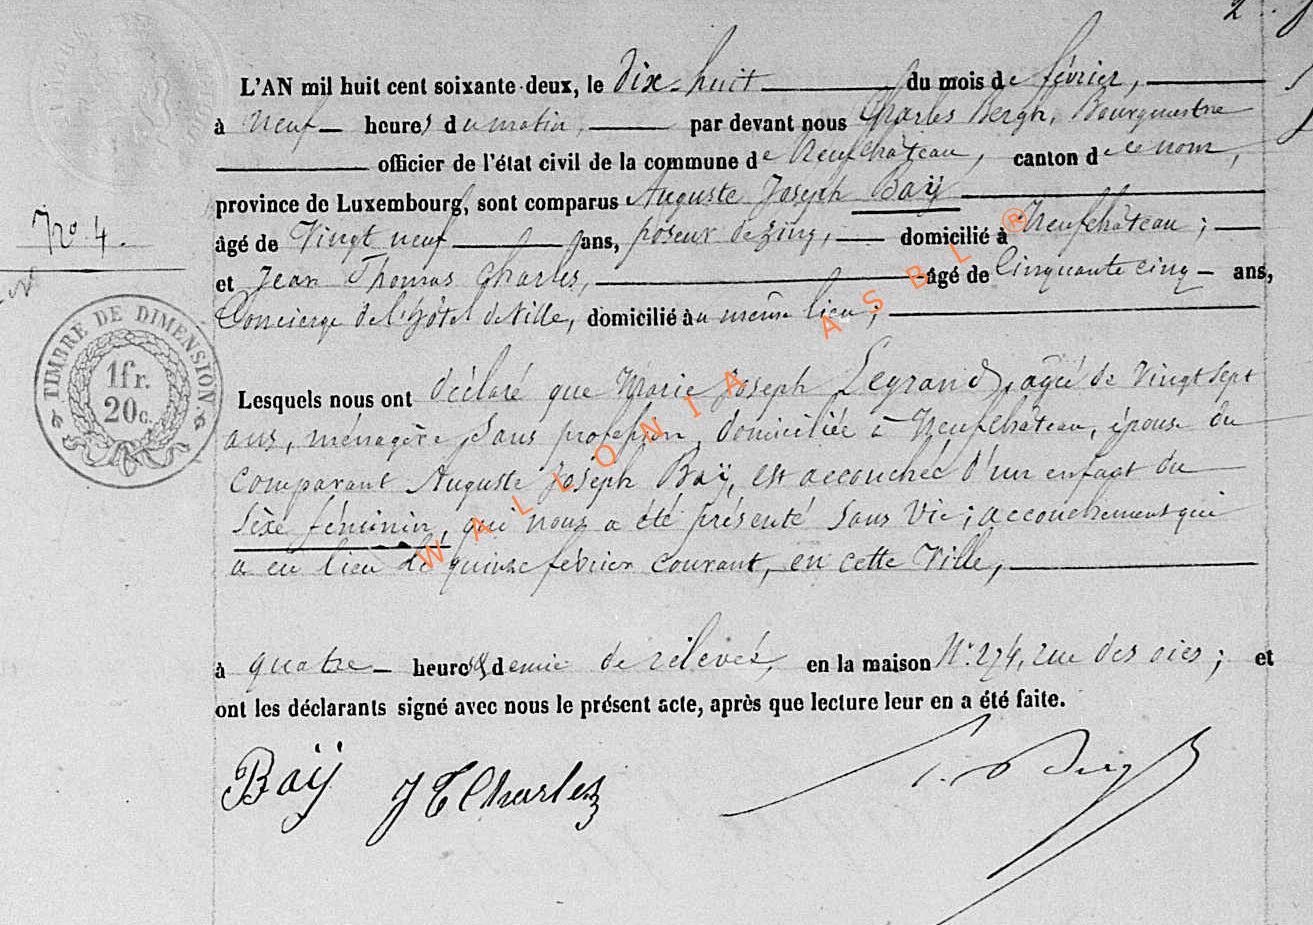 2
L'AN mil huit cent soixante-deux, le dix-huit du mois de février,
à neuf heures du matin, par devant nous Charles Bergh, Bourgmestre
officier de l'état civil de la commune de Neufchâteau, canton de ce nom,
province de Luxembourg, sont comparus Auguste Joseph Baÿ
No. 4.
âgé de Vingt neuf ans, poseur de zing, domicilié à Neufchâteau ;
et Jean Thomas Charles, âgé de Cinquante cinq ans,
Concierge de l'hôtel de Ville, domicilié au même lieu ;
TIMBRE DE DIMENSION
1fr.
20c.
Lesquels nous ont déclaré que Marie Joseph Legrand, agée de Vingt sept
ans, ménagère, sans profession, domiciliée à Neufchâteau, épouse du
comparant Auguste Joseph Baÿ, est accouchée d'un enfant du
Sèxe féminin, qui nous a été présenté sans Vie ; accouchement qui
a eu lieu le quinze février courant, en cette Ville,
à quatre heures & demie de relevée, en la maison N° 274, rue des oies ; et
ont les déclarants signé avec nous le présent acte, après que lecture leur en a été faite.
Baÿ JTCharles
WALLONIA ASBL ®